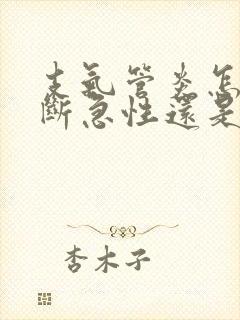 支氣管炎怎
斷急性還是
杏木子